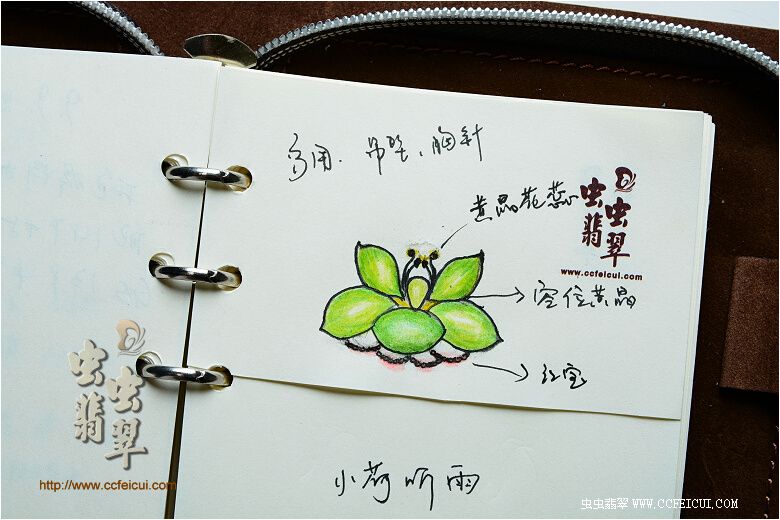 多用、吊坠、胸針
黄晶花蕊
虫虫翡翠
www.ccfeicui.com
空位黄晶
红宝
小荷听雨
虫虫翡翠
http://www.ccfeicui.com
虫虫翡翠 WWW.CCFEICUI.COM